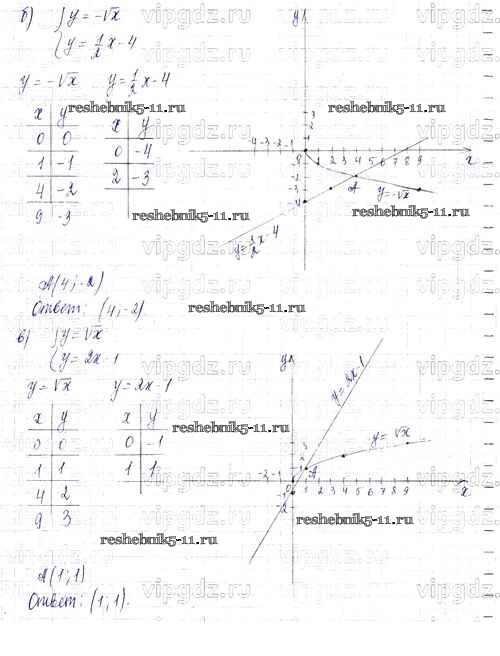 б) { y = -√x
y = 1/2 x - 4
y = -√x  y = 1/2 x - 4
x | y
0 | 0
1 | -1
4 | -2
9 | -3
x | y
0 | -4
2 | -3
y
3
2
1
-4 -3 -2 -1 0 1 2 3 4 5 6 7 8 9 x
-2
-3
-4
A
y = -√x
y = 1/2 x - 4
A(4; -2)
Ответ: (4; -2)
в) { y = √x
y = 2x - 1
y = √x  y = 2x - 1
x | y
0 | 0
1 | 1
4 | 2
9 | 3
x | y
0 | -1
1 | 1
y
3
2
-2 -1 0 1 2 3 4 5 6 7 8 9 x
-1
-2
A
y = 2x - 1
y = √x
A(1; 1)
Ответ: (1; 1).
reshebnik5-11.ru
reshebnik5-11.ru
reshebnik5-11.ru
reshebnik5-11.ru
reshebnik5-11.ru
reshebnik5-11.ru
reshebnik5-11.ru
reshebnik5-11.ru
vipgdz.ru